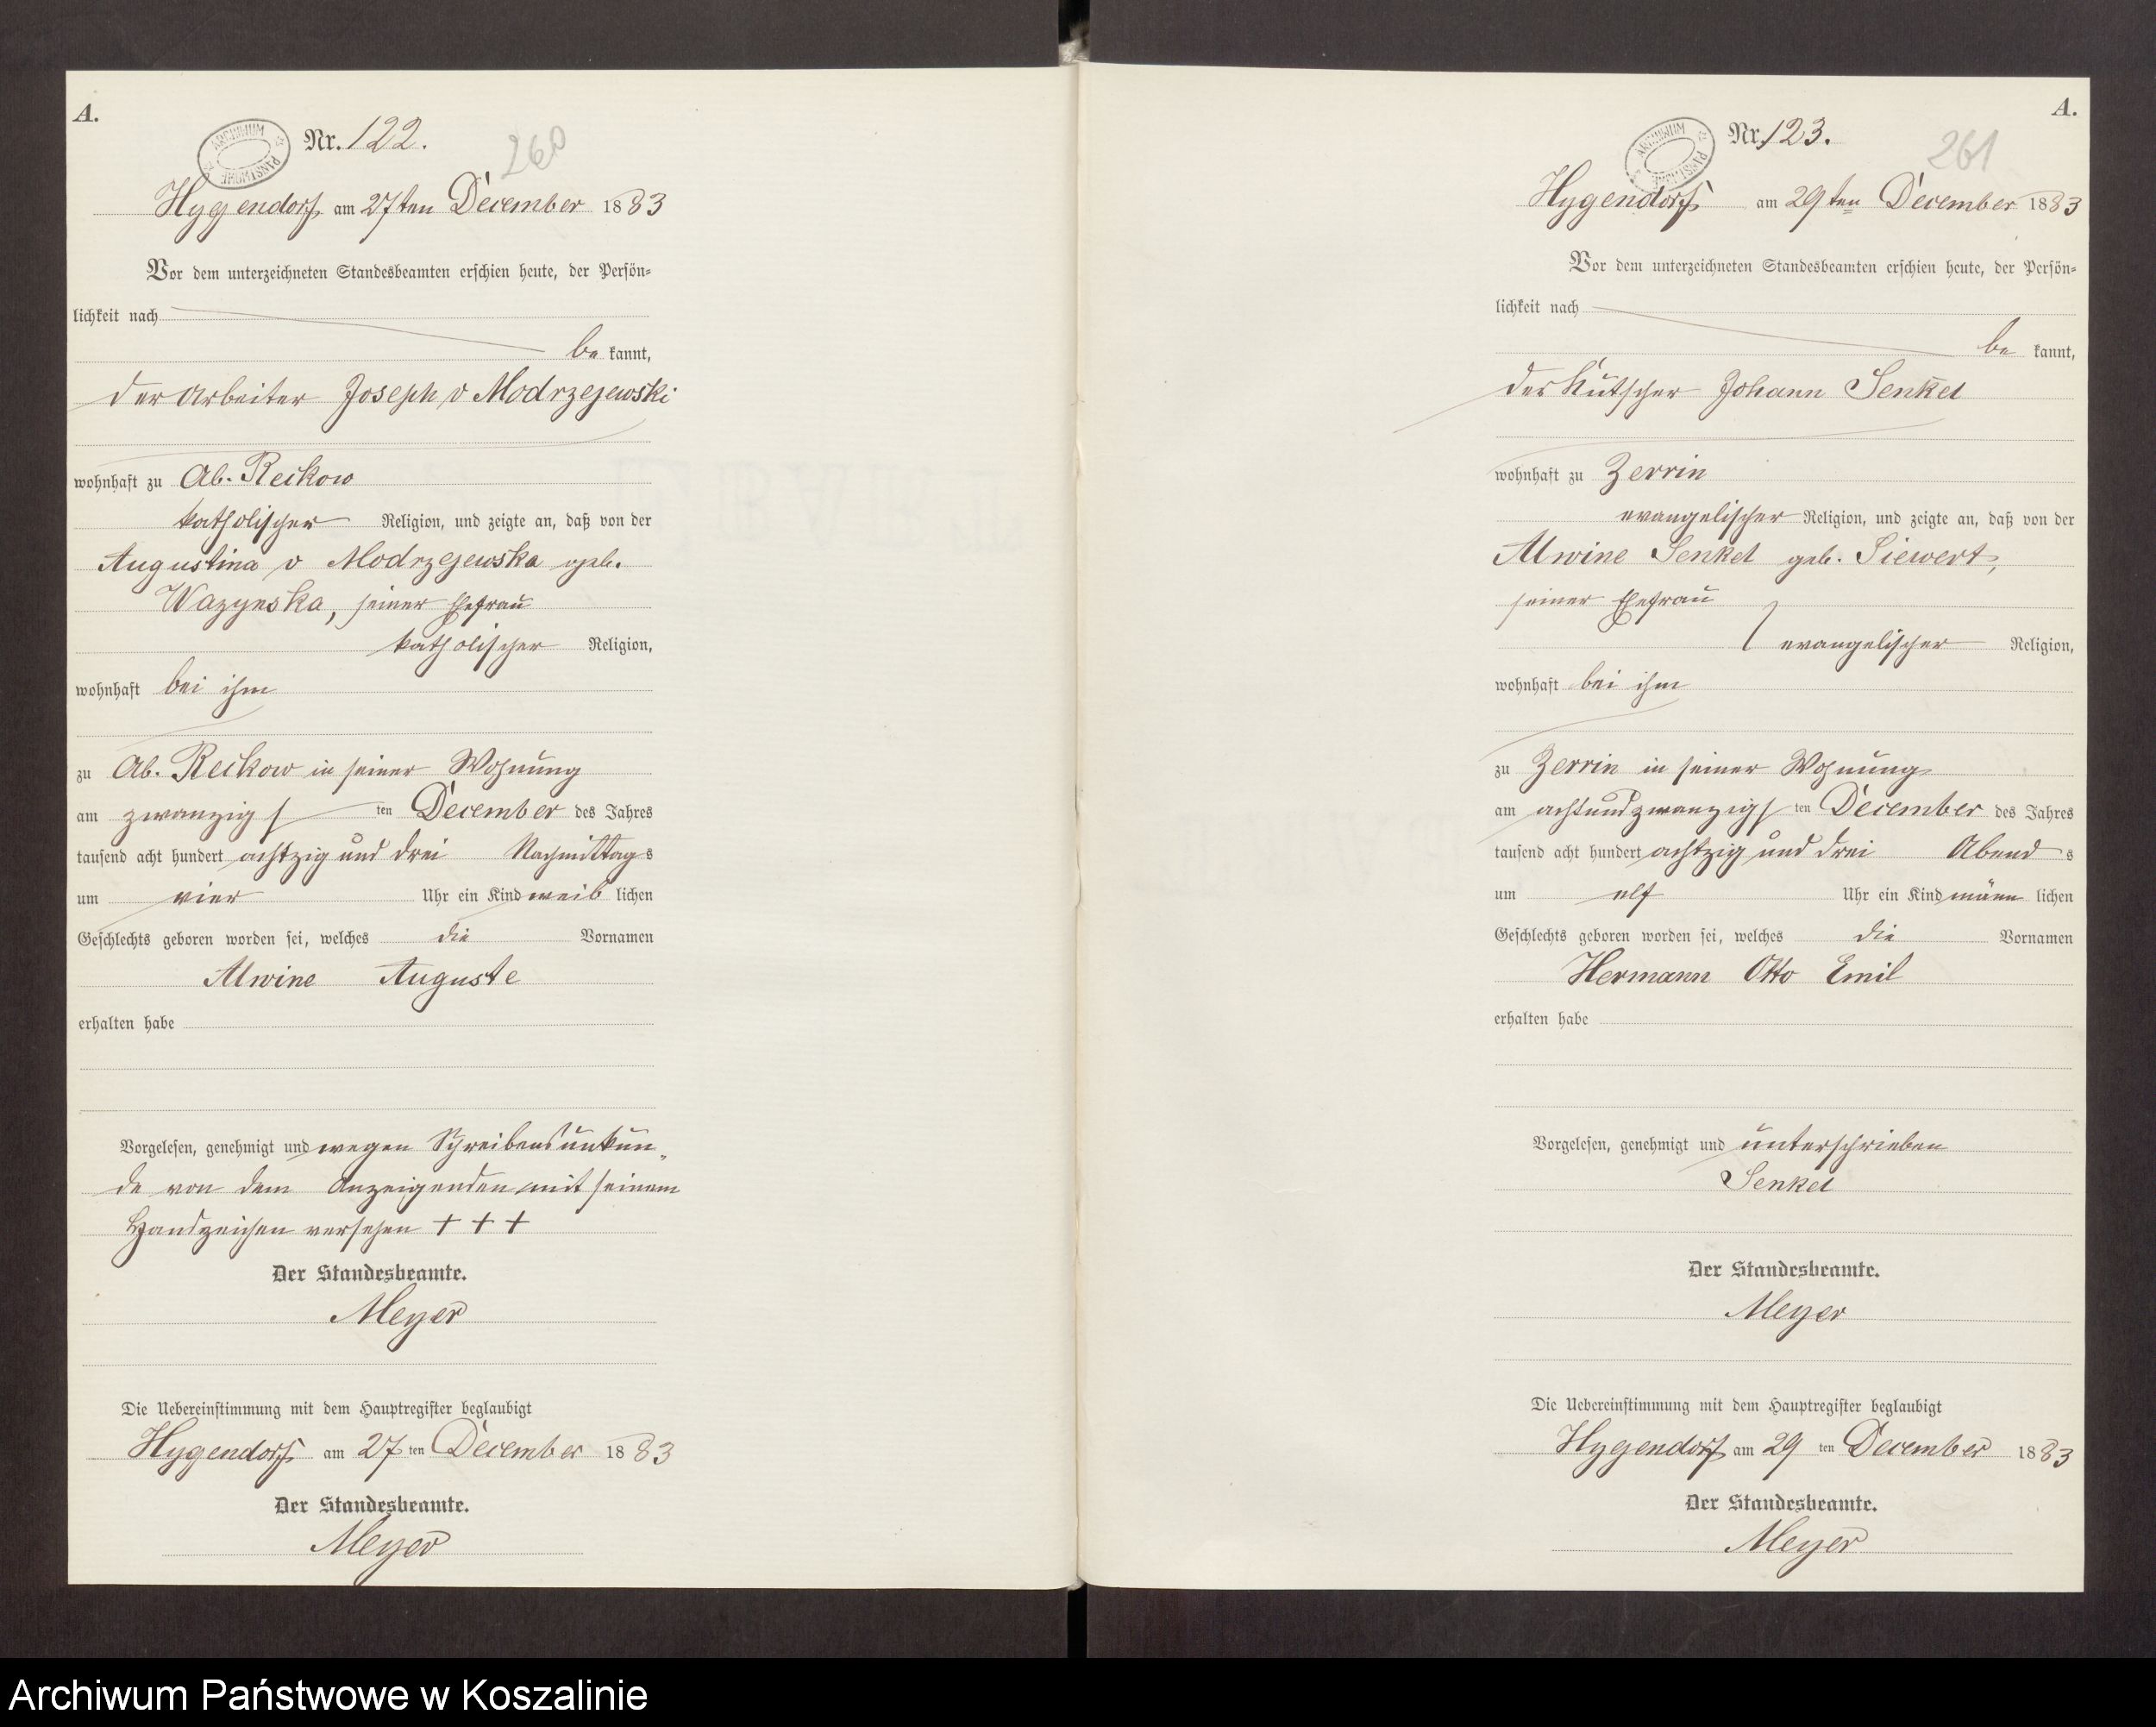 A.
Nr. 122.
260
ARCHIWUM PAŃSTWOWE
Hygendorf, am 27ten December 1883
Vor dem unterzeichneten Standesbeamten erschien heute, der Persön-
lichkeit nach
be kannt,
der Arbeiter Joseph v Modrzejewski
wohnhaft zu Ab. Reckow
katholischer Religion, und zeigte an, daß von der
Augustina v Modrzejewska geb.
Wazynska, seiner Ehefrau
katholischer Religion,
wohnhaft bei ihm
zu Ab. Reckow in seiner Wohnung
am zwanzigs ten December des Jahres
tausend acht hundert achtzig und drei Nachmittag s
um vier Uhr ein Kind weib lichen
Geschlechts geboren worden sei, welches die Vornamen
Alwine Auguste
erhalten habe
Vorgelesen, genehmigt und wegen Schreibensunkun-
de von dem Anzeigenden mit seinem
Handzeichen versehen + + +
Der Standesbeamte.
Meyer
Die Uebereinstimmung mit dem Hauptregister beglaubigt
Hygendorf am 27 ten December 1883
Der Standesbeamte.
Meyer
A.
Nr. 123.
261
ARCHIWUM PAŃSTWOWE
Hygendorf am 29ten December 1883
Vor dem unterzeichneten Standesbeamten erschien heute, der Persön-
lichkeit nach
be kannt,
der Kutscher Johann Senkel
wohnhaft zu Zerrin
evangelischer Religion, und zeigte an, daß von der
Alwine Senkel geb. Siewert,
seiner Ehefrau
evangelischer Religion,
wohnhaft bei ihm
zu Zerrin in seiner Wohnung
am achtundzwanzigs ten December des Jahres
tausend acht hundert achtzig und drei Abend s
um elf Uhr ein Kind männ lichen
Geschlechts geboren worden sei, welches die Vornamen
Hermann Otto Emil
erhalten habe
Vorgelesen, genehmigt und unterschrieben
Senkel
Der Standesbeamte.
Meyer
Die Uebereinstimmung mit dem Hauptregister beglaubigt
Hygendorf am 29 ten December 1883
Der Standesbeamte.
Meyer
Archiwum Państwowe w Koszalinie